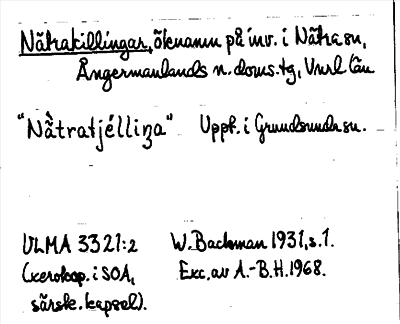 Nätrakillingar, öknamn på inv. i Nätra sn,
Ångermanlands n. doms.tg, Vnrl. län
"Nä̀tratjélliŋa" Uppt. i Grundsunda sn.
ULMA 3321:2 W. Backman 1931, s. 1.
(xerokop. i SOA, Exc. av A.-B.H. 1968.
särsk. kapsel).